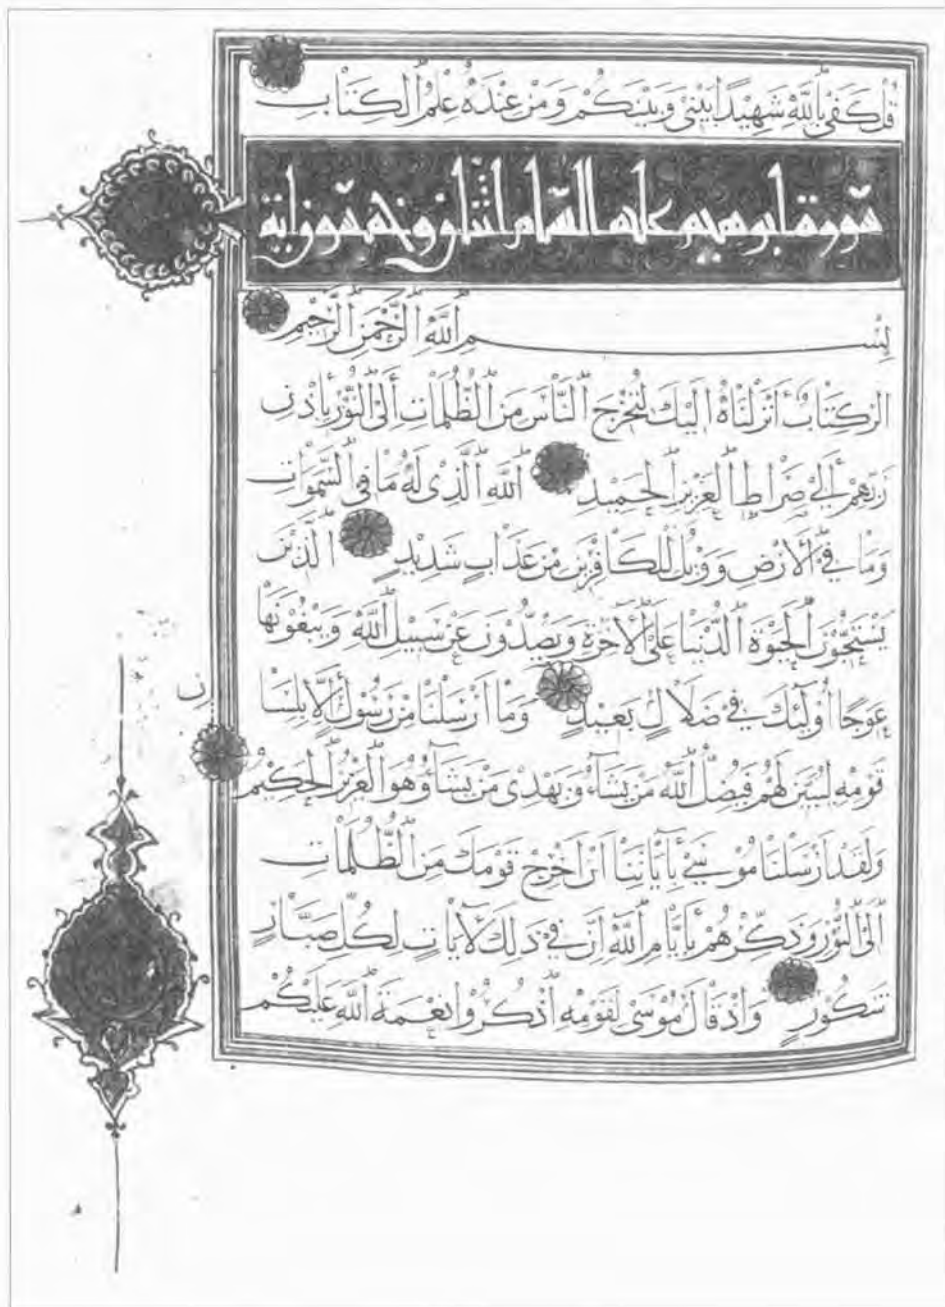 قُلْ كَفَىٰ بِاللَّهِ شَهِيدًا بَيْنِي وَبَيْنَكُمْ وَمَنْ عِنْدَهُ عِلْمُ الْكِتَابِ
سورة ابرهيم عليه السلام اثنان وخمسون اية
بِسْمِ اللَّهِ الرَّحْمَنِ الرَّحِيمِ
الر كِتَابٌ أَنْزَلْنَاهُ إِلَيْكَ لِتُخْرِجَ النَّاسَ مِنَ الظُّلُمَاتِ إِلَى النُّورِ بِإِذْنِ
رَبِّهِمْ إِلَىٰ صِرَاطِ الْعَزِيزِ الْحَمِيدِ اللَّهِ الَّذِي لَهُ مَا فِي السَّمَوَاتِ
وَمَا فِي الْأَرْضِ وَوَيْلٌ لِلْكَافِرِينَ مِنْ عَذَابٍ شَدِيدٍ الَّذِينَ
يَسْتَحِبُّونَ الْحَيَوةَ الدُّنْيَا عَلَى الْآخِرَةِ وَيَصُدُّونَ عَنْ سَبِيلِ اللَّهِ وَيَبْغُونَهَا
عِوَجًا أُولَئِكَ فِي ضَلَالٍ بَعِيدٍ وَمَا أَرْسَلْنَا مِنْ رَسُولٍ إِلَّا بِلِسَا
ن
قَوْمِهِ لِيُبَيِّنَ لَهُمْ فَيُضِلُّ اللَّهُ مَنْ يَشَاءُ وَيَهْدِي مَنْ يَشَاءُ وَهُوَ الْعَزِيزُ الْحَكِيمُ
وَلَقَدْ أَرْسَلْنَا مُوسَىٰ بِآيَاتِنَا أَنْ أَخْرِجْ قَوْمَكَ مِنَ الظُّلُمَاتِ
إِلَى النُّورِ وَذَكِّرْهُمْ بِأَيَّامِ اللَّهِ إِنَّ فِي ذَلِكَ لَآيَاتٍ لِكُلِّ صَبَّارٍ
شَكُورٍ وَإِذْ قَالَ مُوسَىٰ لِقَوْمِهِ اذْكُرُوا نِعْمَةَ اللَّهِ عَلَيْكُمْ